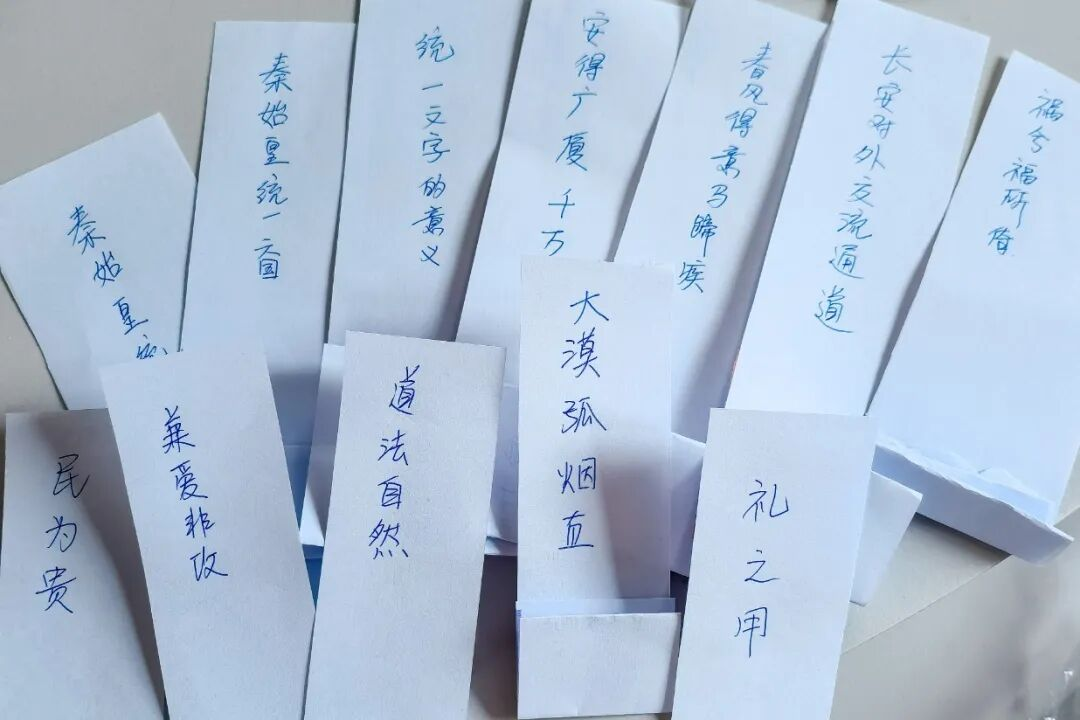 秦始皇
秦始皇统一六国
统一文字的意义
安得广厦千万
春风得意马蹄疾
长安对外交流通道
祸兮福所倚
民为贵
兼爱非攻
道法自然
大漠孤烟直
礼之用